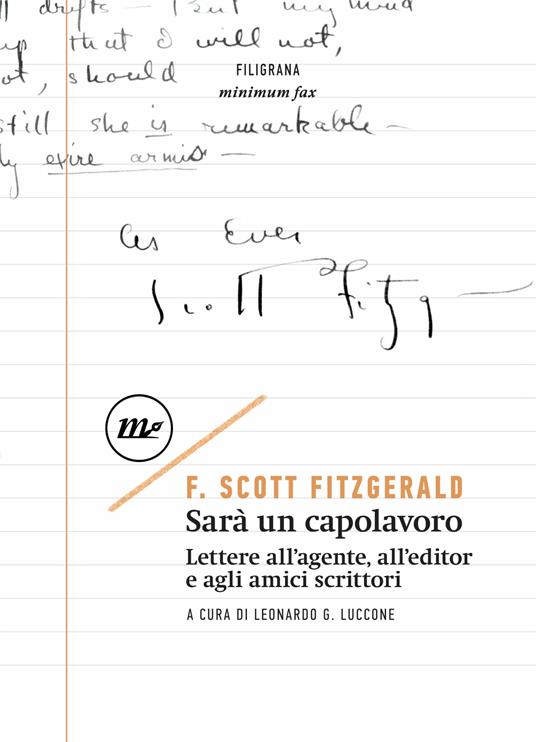 drifts — but my mind
up that I will not,
ot, should
FILIGRANA
minimum fax
still she is remarkable —
ly
As Ever
Scott Fitzg
m
F. SCOTT FITZGERALD
Sarà un capolavoro
Lettere all'agente, all'editor
e agli amici scrittori
A CURA DI LEONARDO G. LUCCONE